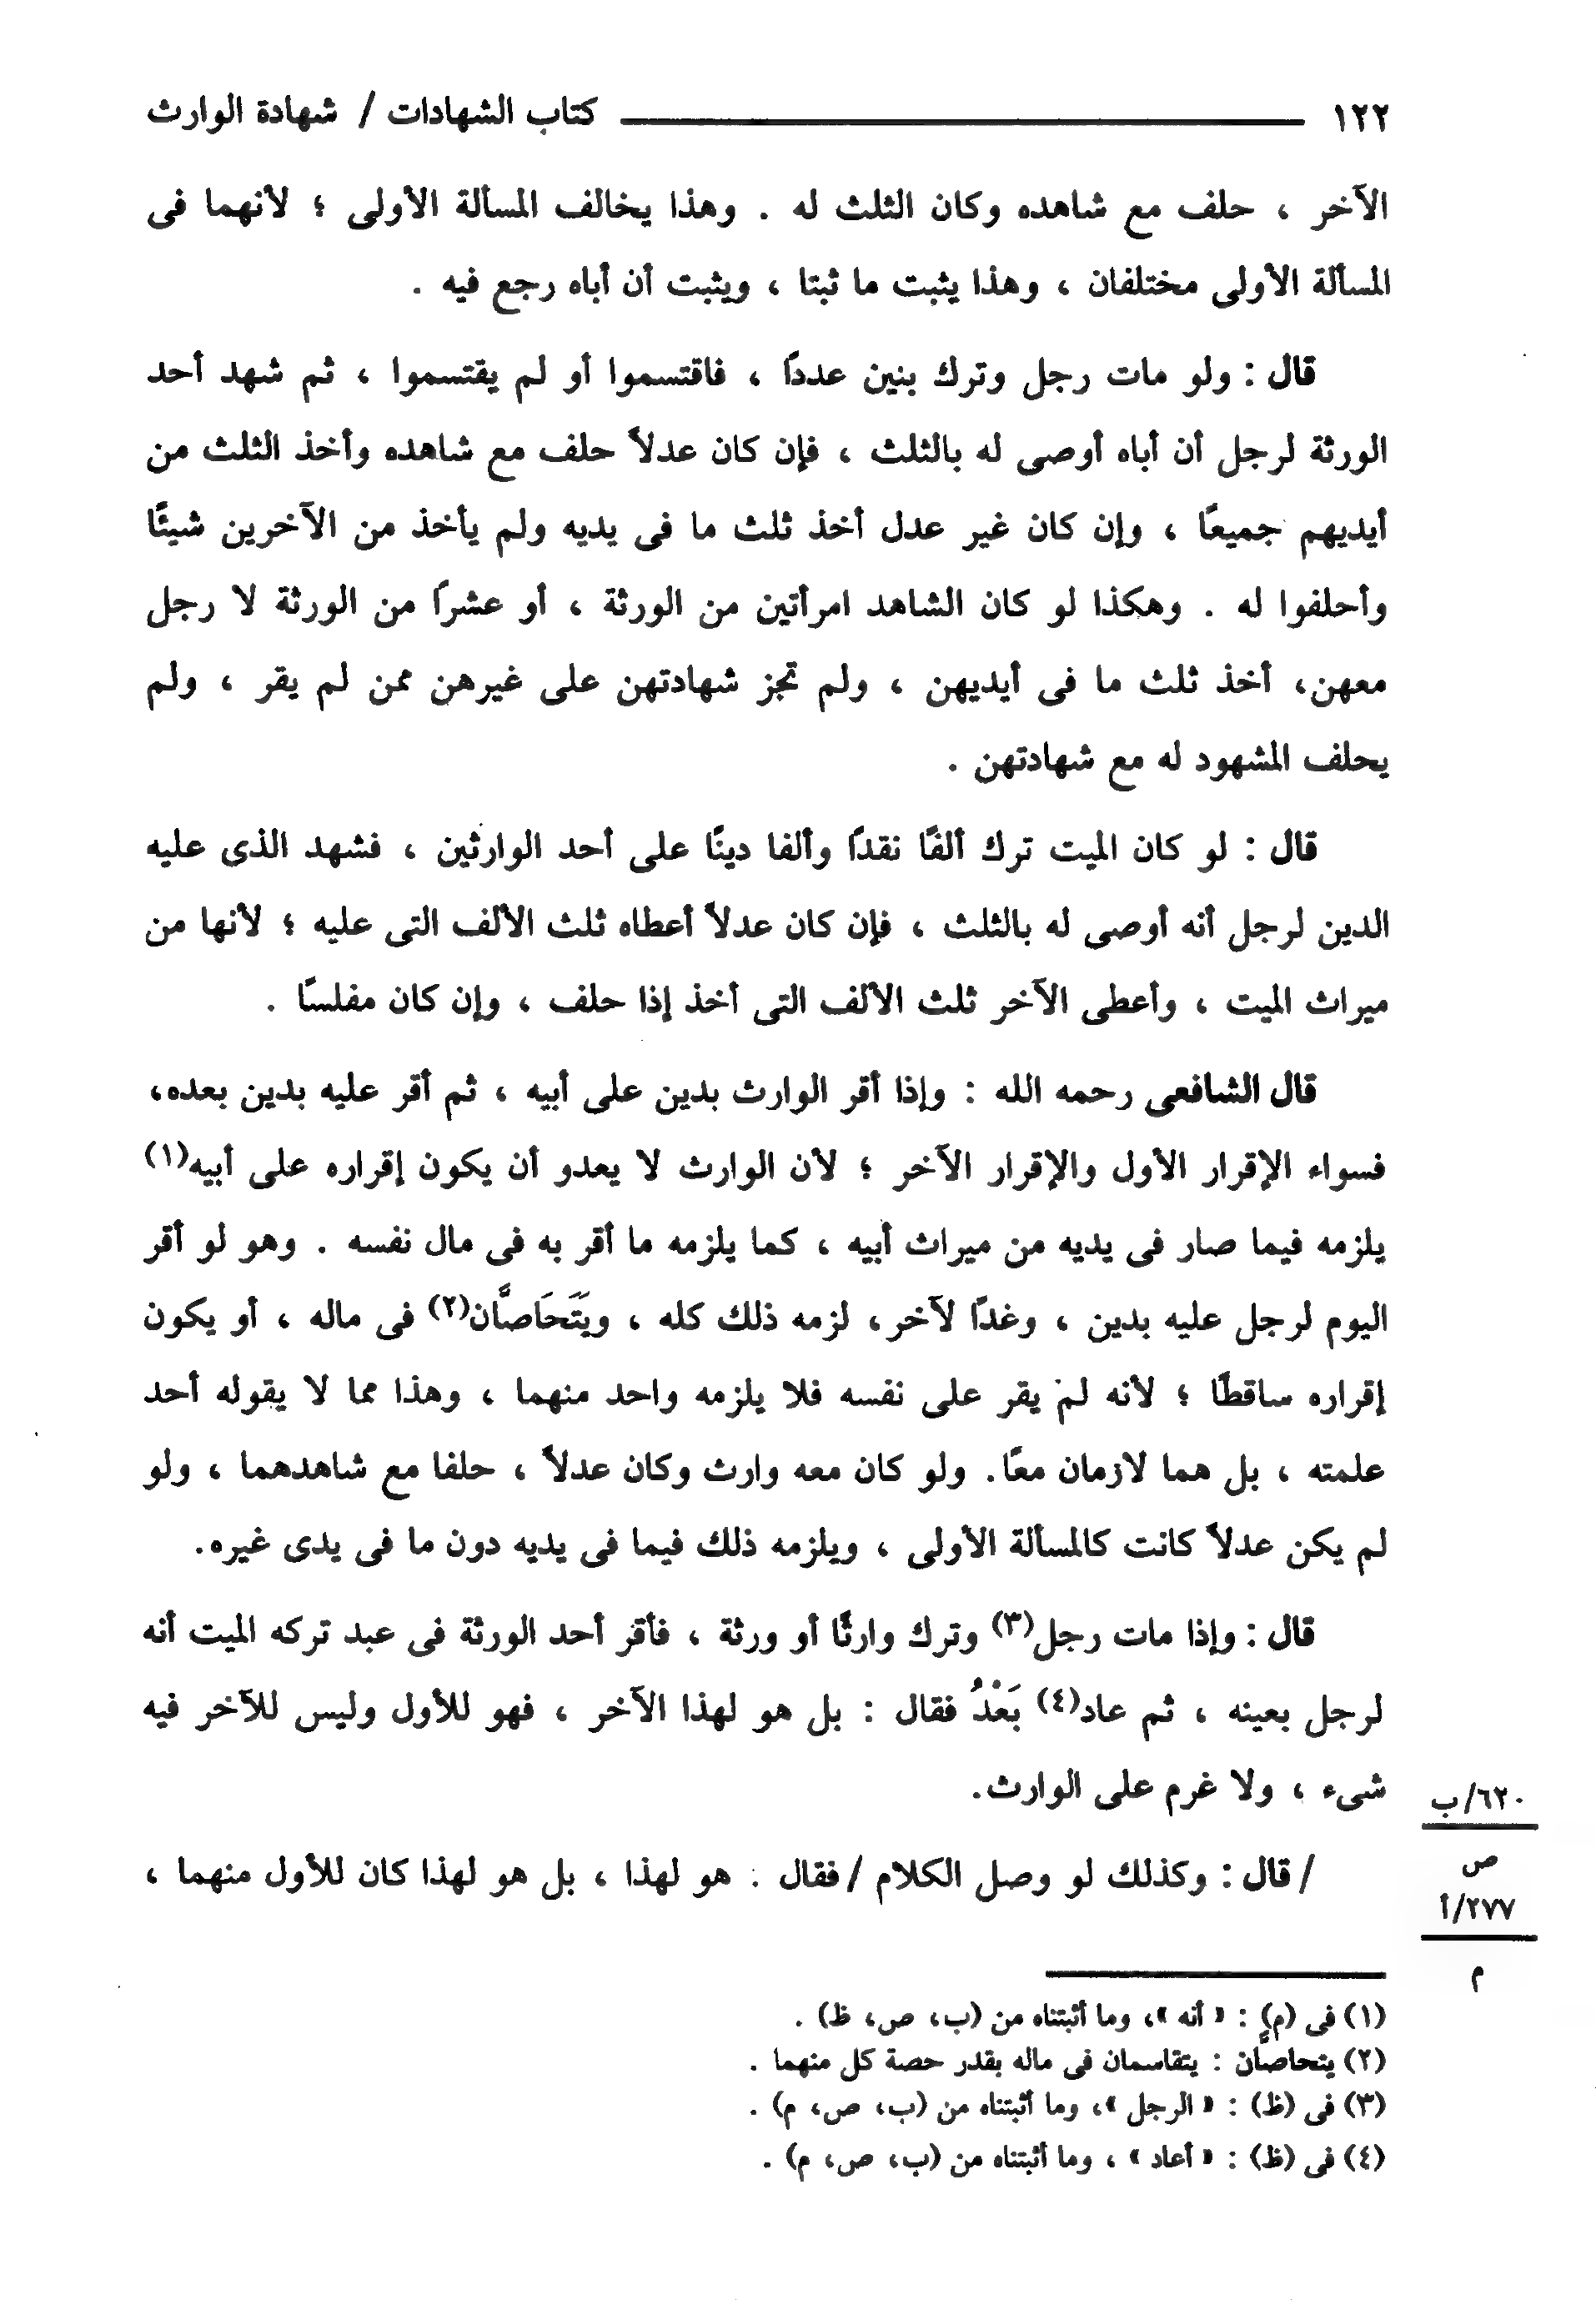 ١٢٢ كتاب الشهادات / شهادة الوارث
الآخر ، حلف مع شاهده وكان الثلث له . وهذا يخالف المسألة الأولى ؛ لأنهما فى
المسألة الأولى مختلفان ، وهذا يثبت ما ثبتا ، ويثبت أن أباه رجع فيه .
قال : ولو مات رجل وترك بنين عددًا ، فاقتسموا أو لم يقتسموا ، ثم شهد أحد
الورثة لرجل أن أباه أوصى له بالثلث ، فإن كان عدلاً حلف مع شاهده وأخذ الثلث من
أيديهم جميعًا ، وإن كان غير عدل أخذ ثلث ما فى يديه ولم يأخذ من الآخرين شيئًا
وأحلفوا له . وهكذا لو كان الشاهد امرأتين من الورثة ، أو عشرًا من الورثة لا رجل
معهن، أخذ ثلث ما فى أيديهن ، ولم تجز شهادتهن على غيرهن ممن لم يقر ، ولم
يحلف المشهود له مع شهادتهن .
قال : لو كان الميت ترك ألفًا نقدًا وألفا دينًا على أحد الوارثين ، فشهد الذى عليه
الدين لرجل أنه أوصى له بالثلث ، فإن كان عدلاً أعطاه ثلث الألف التى عليه ؛ لأنها من
ميراث الميت ، وأعطى الآخر ثلث الألف التى أخذ إذا حلف ، وإن كان مفلسًا .
قال الشافعى رحمه الله : وإذا أقر الوارث بدين على أبيه ، ثم أقر عليه بدين بعده،
فسواء الإقرار الأول والإقرار الآخر ؛ لأن الوارث لا يعدو أن يكون إقراره على أبيه(١)
يلزمه فيما صار فى يديه من ميراث أبيه ، كما يلزمه ما أقر به فى مال نفسه . وهو لو أقر
اليوم لرجل عليه بدين ، وغدًا لآخر، لزمه ذلك كله ، ويَتَحَاصَّان(٢) فى ماله ، أو يكون
إقراره ساقطًا ؛ لأنه لم يقر على نفسه فلا يلزمه واحد منهما ، وهذا مما لا يقوله أحد
علمته ، بل هما لازمان معًا. ولو كان معه وارث وكان عدلاً ، حلفا مع شاهدهما ، ولو
لم يكن عدلاً كانت كالمسألة الأولى ، ويلزمه ذلك فيما فى يديه دون ما فى يدى غيره.
قال : وإذا مات رجل(٣) وترك وارثًا أو ورثة ، فأقر أحد الورثة فى عبد تركه الميت أنه
لرجل بعينه ، ثم عاد(٤) بَعْدُ فقال : بل هو لهذا الآخر ، فهو للأول وليس للآخر فيه
شىء ، ولا غرم على الوارث.
٦٢٠/ب
ص
٢٧٧/أ
م
/ قال : وكذلك لو وصل الكلام / فقال : هو لهذا ، بل هو لهذا كان للأول منهما ،
(١) فى (م) : « أنه »، وما أثبتناه من (ب، ص، ظ) .
(٢) يتحاصَّان : يتقاسمان فى ماله بقدر حصة كل منهما .
(٣) فى (ظ) : « الرجل »، وما أثبتناه من (ب، ص، م) .
(٤) فى (ظ) : « أعاد » ، وما أثبتناه من (ب، ص، م) .